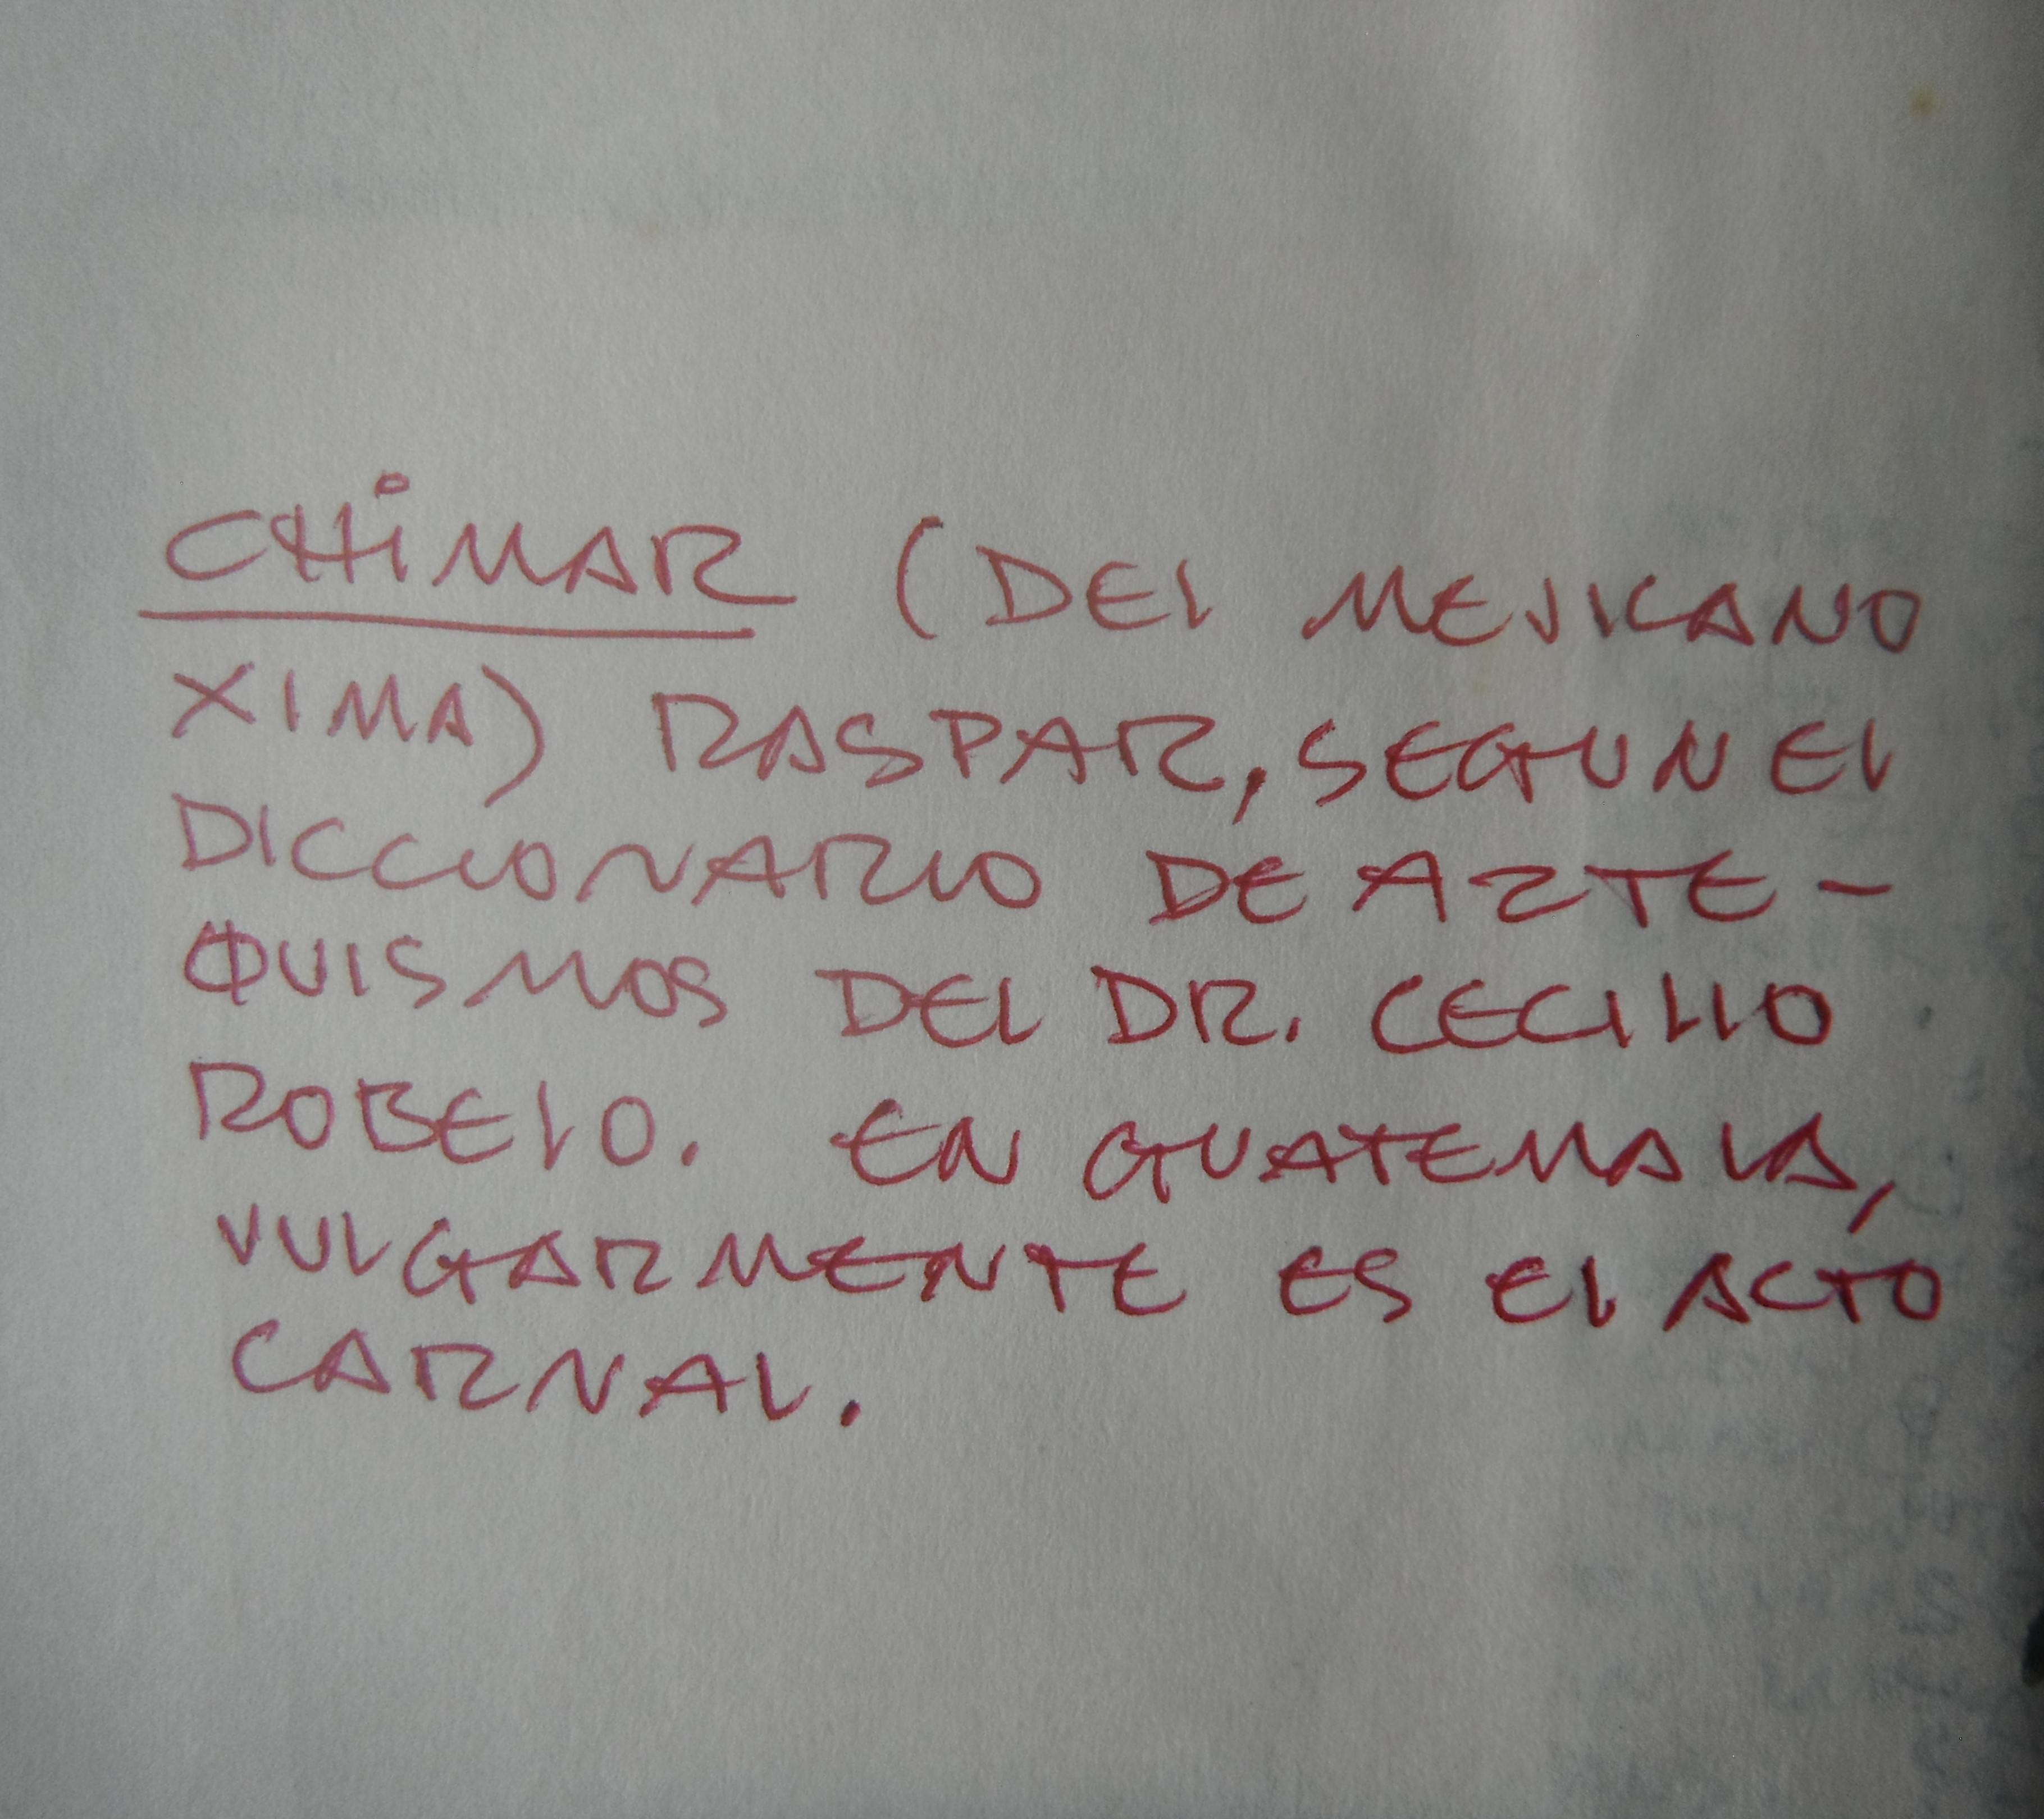 CHiMAR (DEL MEJICANO
XIMA) RASPAR, SEGUN EL
DICCIONARIO DE AZTE-
QUISMOS DEL DR. CECILIO
ROBELO. EN GUATEMALA,
VULGARMENTE ES EL ACTO
CARNAL.